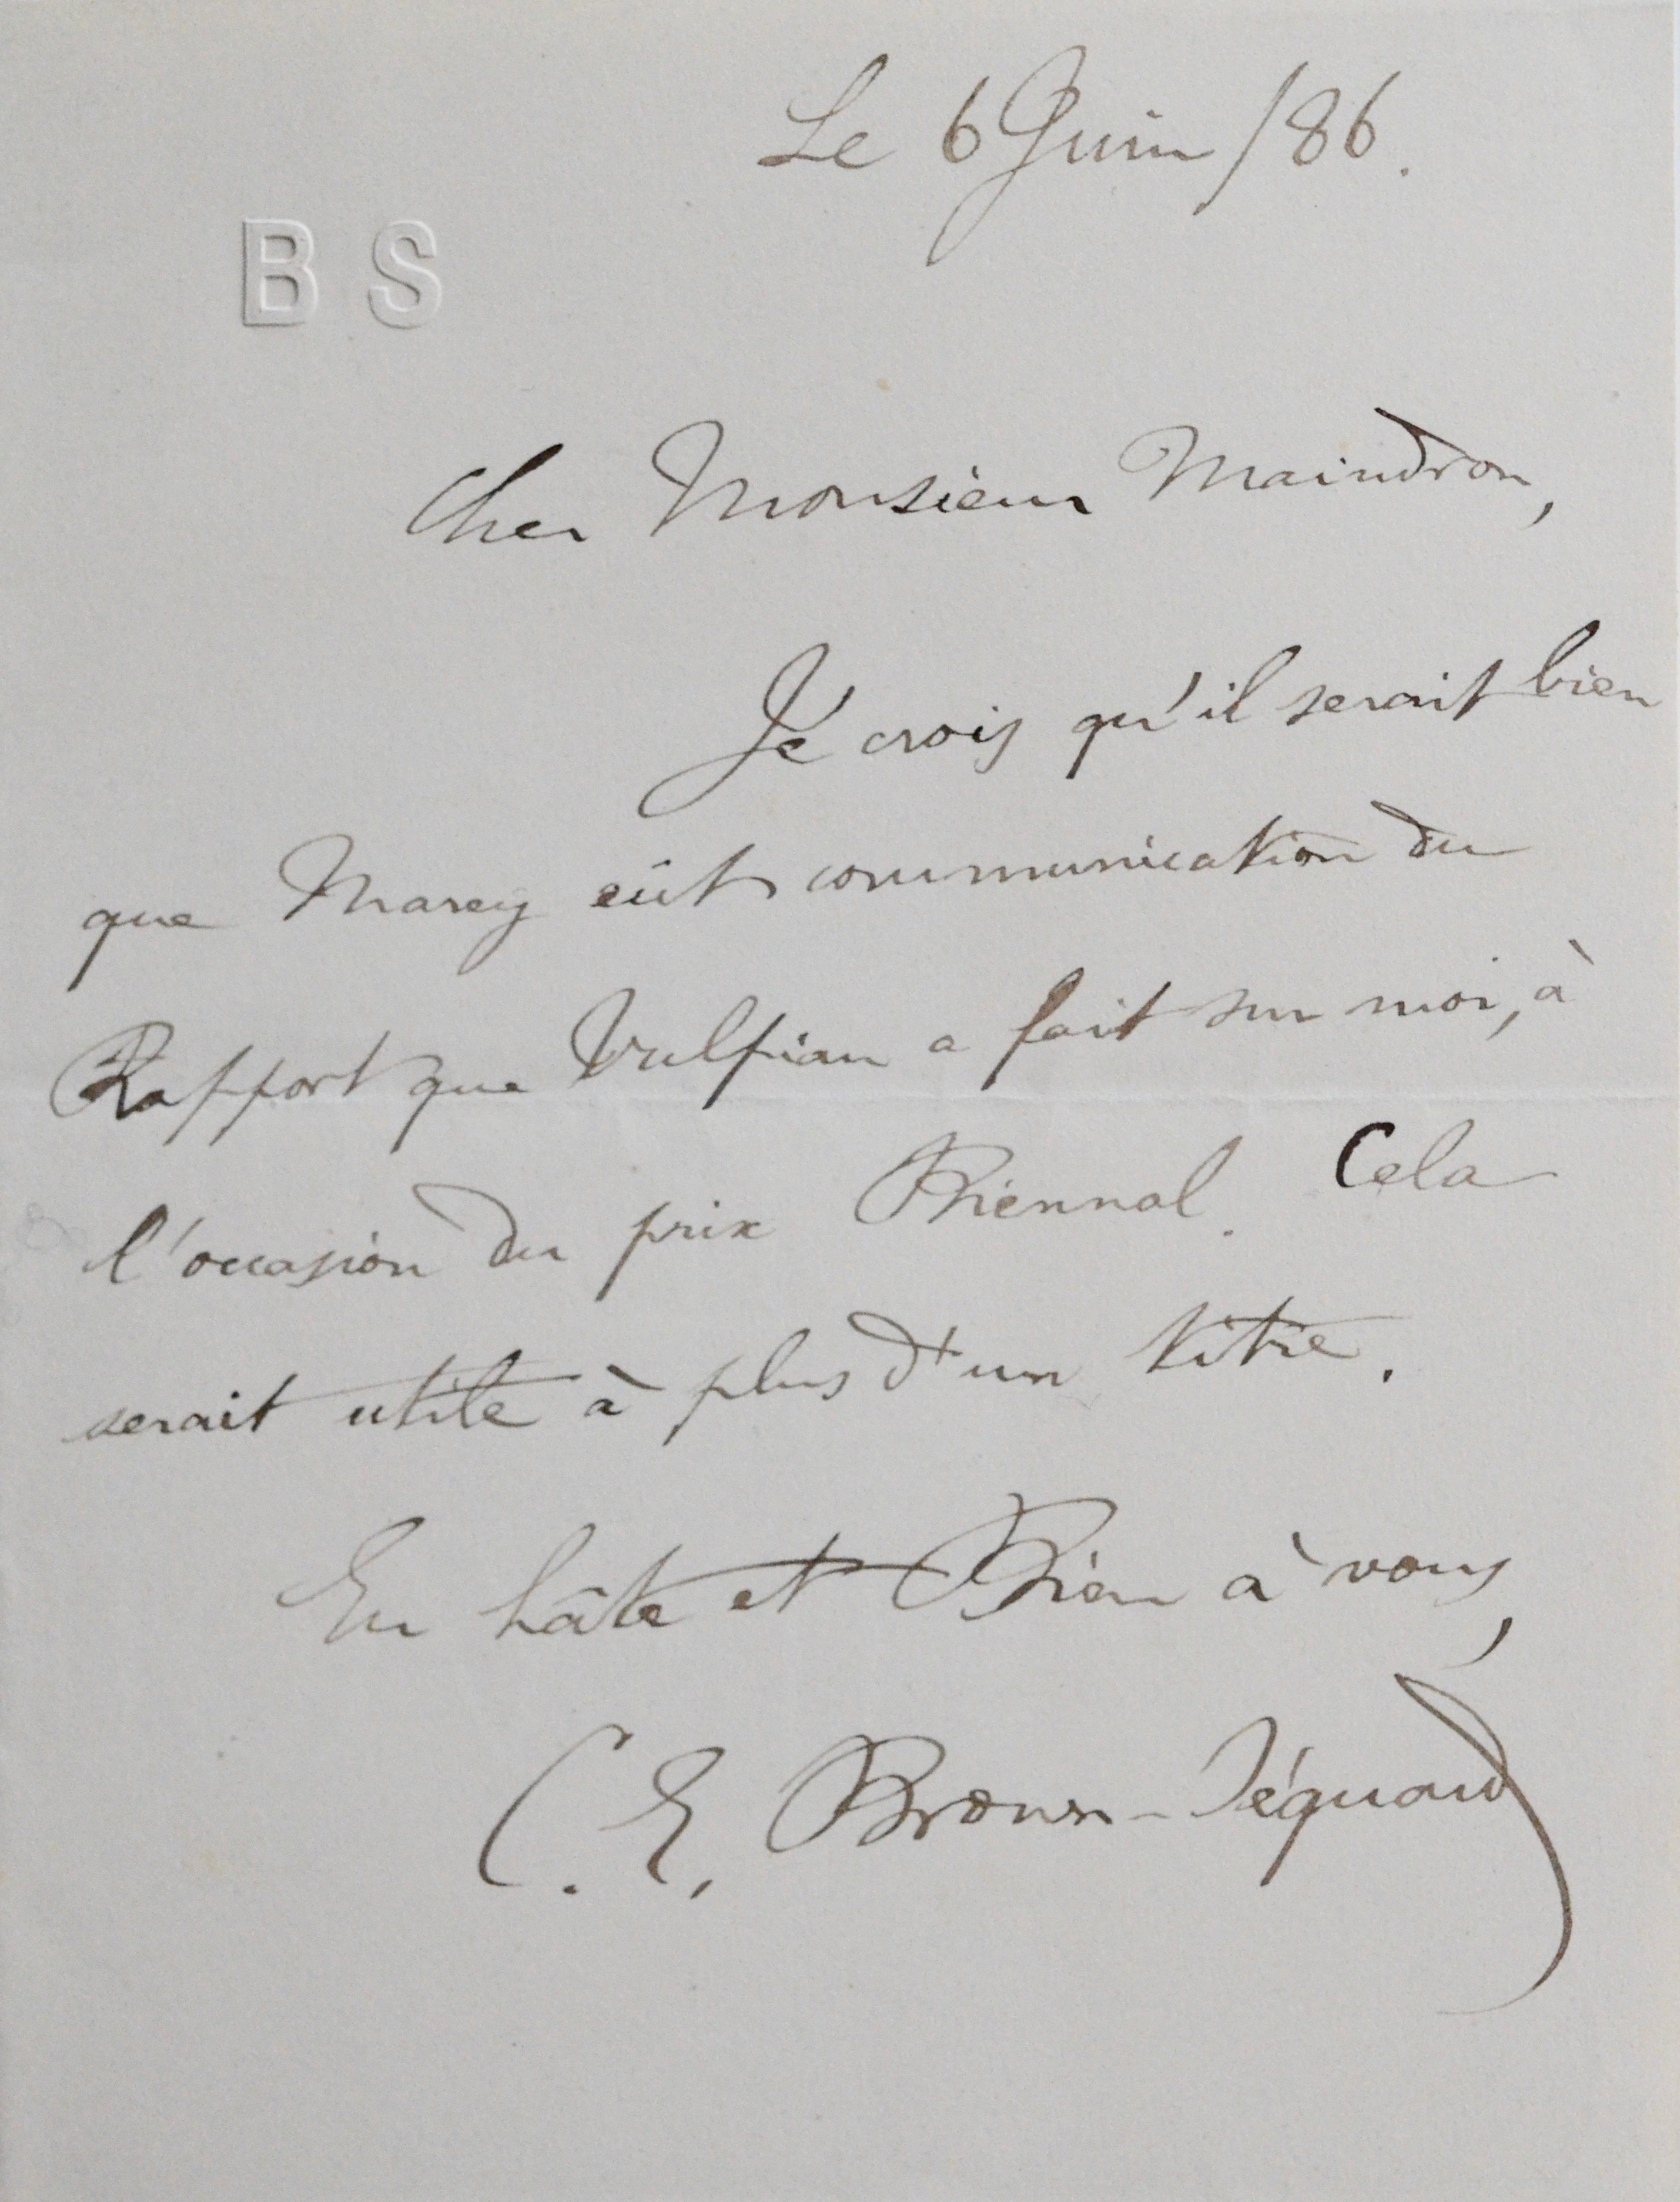 Le 6 Juin /86.
B S
Cher Monsieur Maindron,
Je crois qu'il serait bien
que Marey eût communication du
Rapport que Vulpian a fait sur moi, à
l'occasion du prix Biennal. Cela
serait utile à plus d'un titre.
En hâte et Bien à vous,
C. E. Brown-Séquard